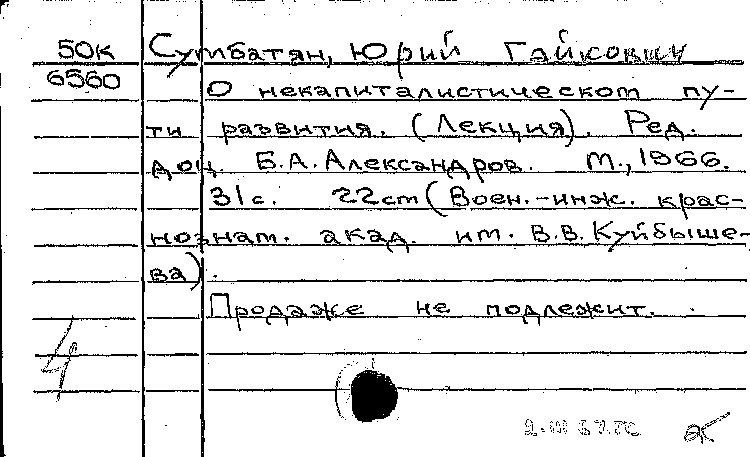 50К Сумбатян, Юрий Гайкович
6560 О некапиталистическом пу-
ти развития. (Лекция). Ред.
доц. Б.А.Александров. М.,1966.
31с. 22см(Воен.-инж. крас-
нознам. акад. им. В.В.Куйбыше-
ва).
Продаже не подлежит.
4